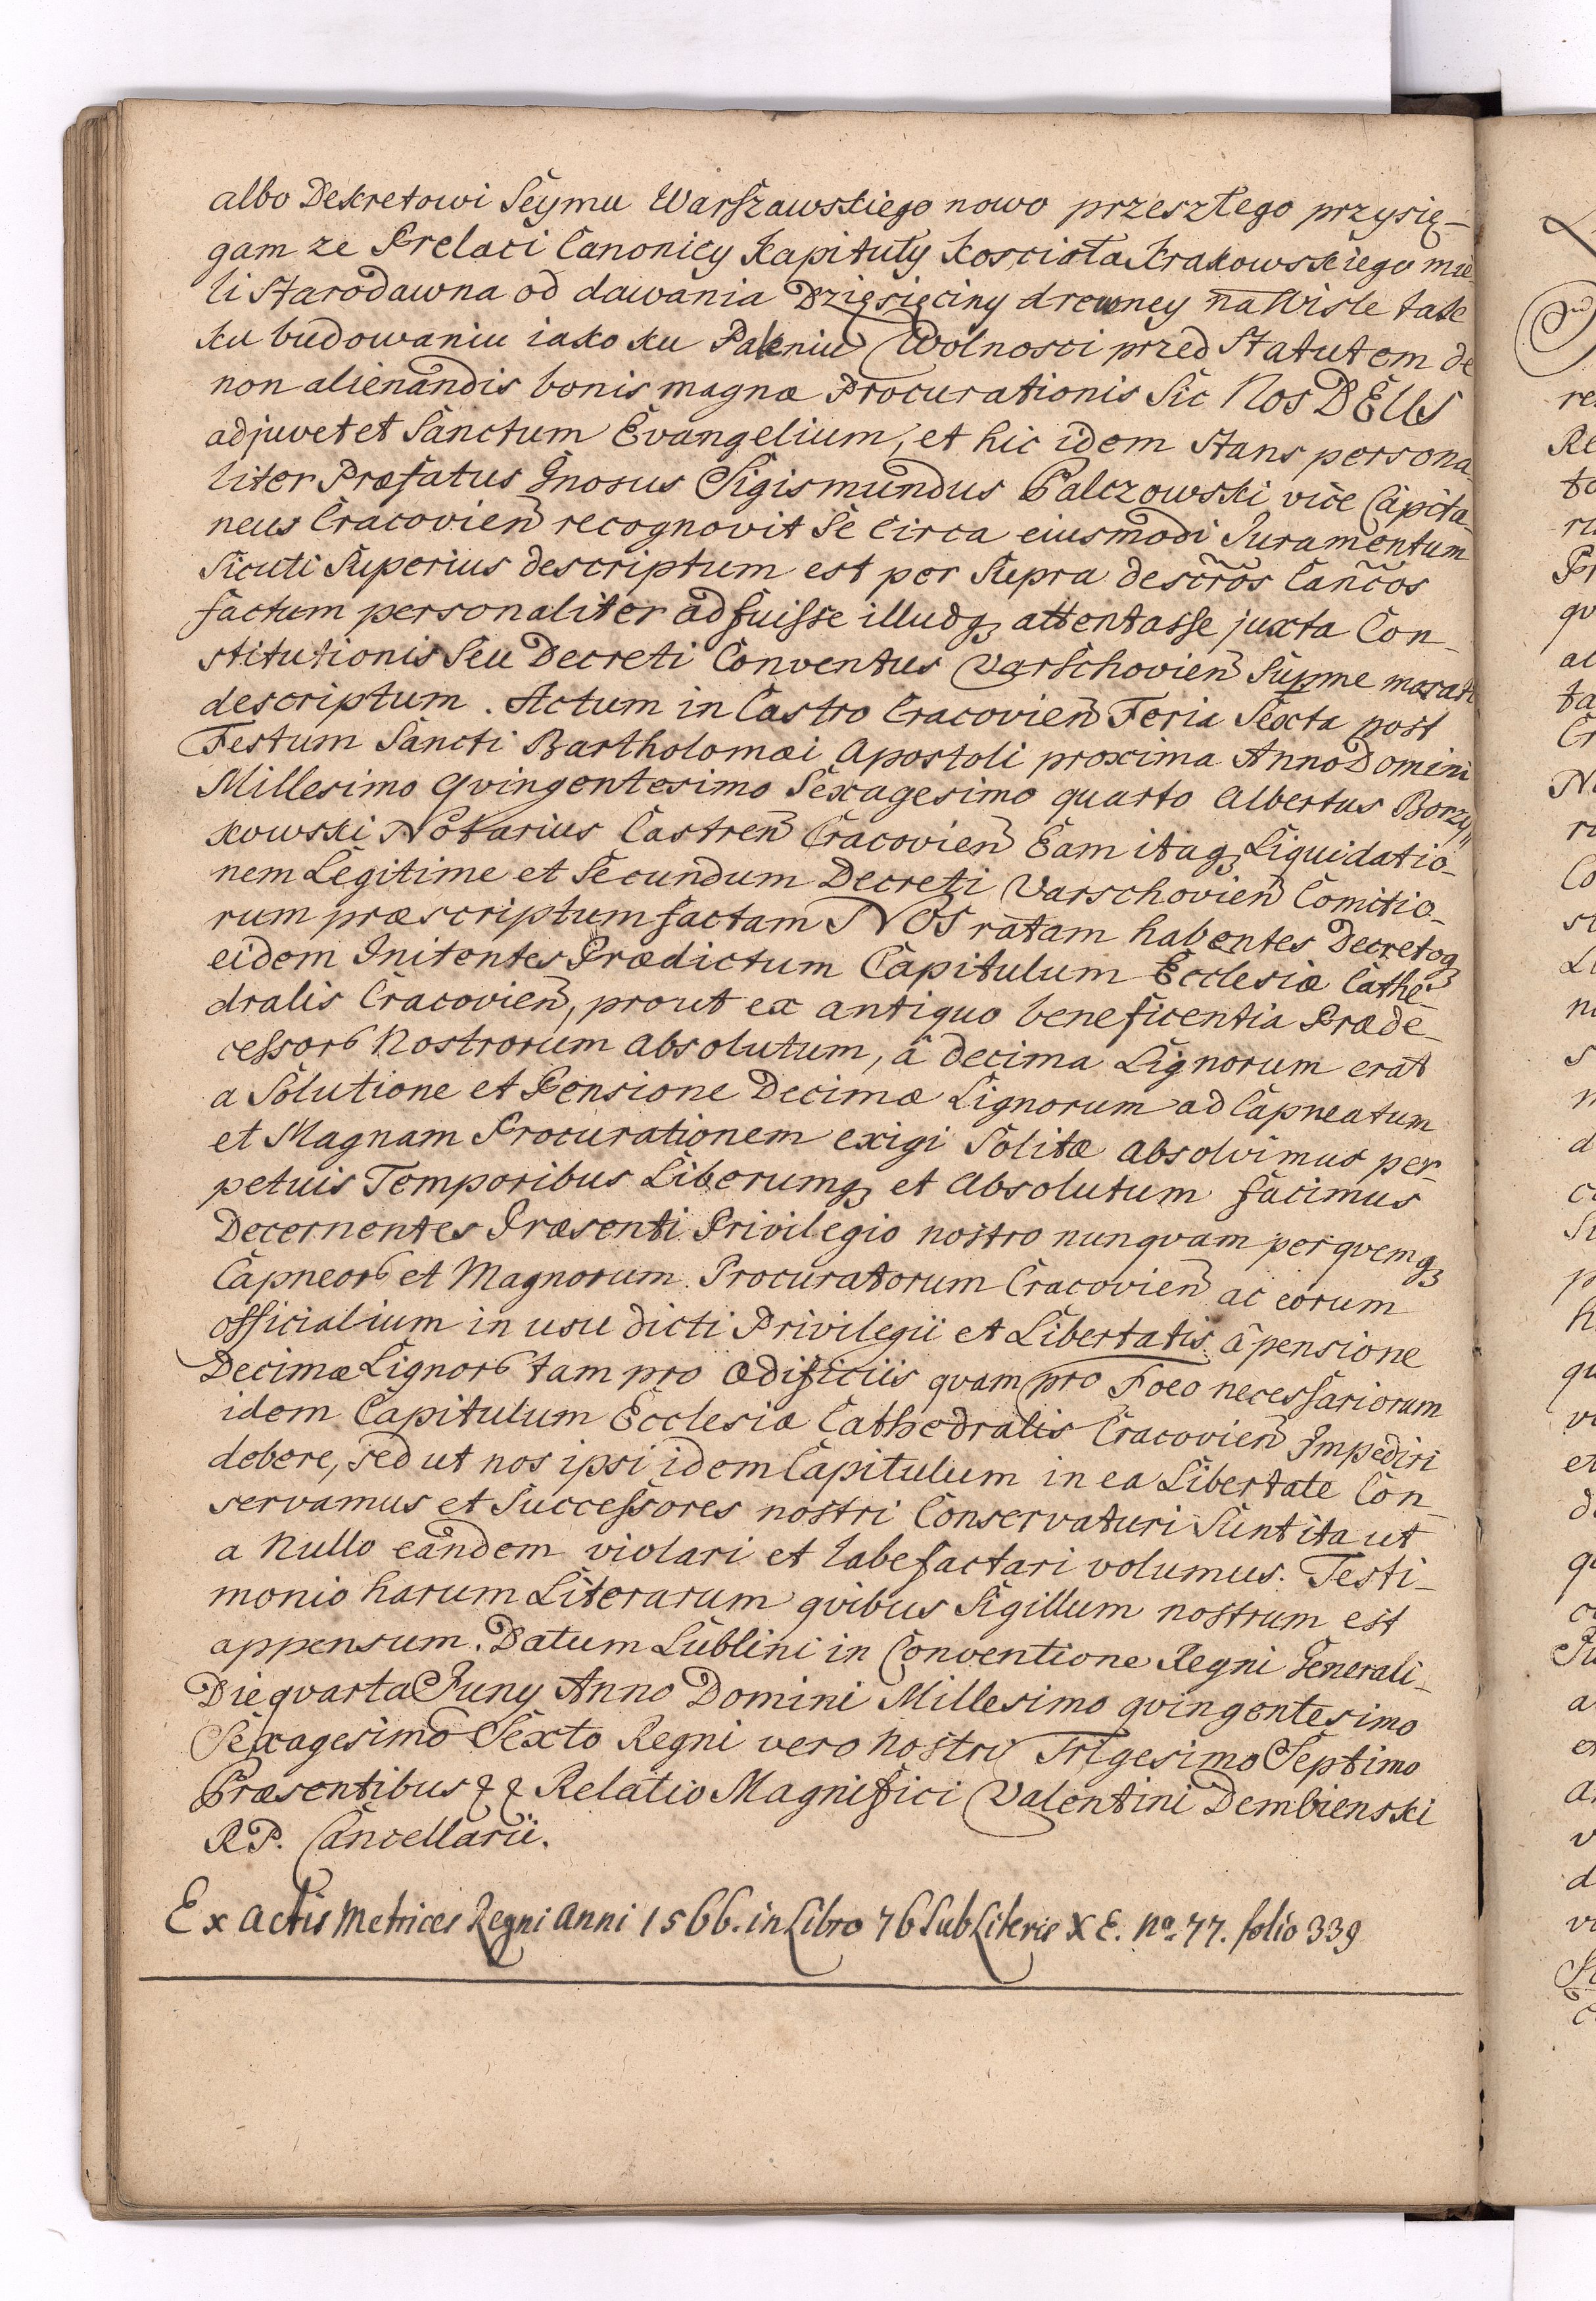 albo Dekretowi Seymu Warszawskiego nowo przeszłego przysię-
gam ze Prelaci Canonicy Kapituły Kosciała Krakowskiego mie
li starodawna od dawania Dzięsięciny drewney na Wisle tak
ku budowaniu iako ku Paleniu Wolnosci przed Statutem de
non alienandis bonis magnæ Procurationis Sic Nos DEUS
adjuvet et Sanctum Evangelium, et hic idem stans persona
liter Præfatus Gnosus Sigismundus Palczowski vice Capita-
neus Cracovien recognovit Se Circa eiusmodi Juramentum
Sicuti Superius descriptum est per Supra descr̃os Canc̃os
factum personaliter adfuisse illudq3 attentasse juxta Con-
stitutionis Seu Decreti Conventus Varschovien
descriptum. Actum in Castro Cracovien Feria Sexta post
Festum Sancti Bartholomæi Apostoli proxima Anno Domini
Millesimo Qvingentesimo Sexagesimo quarto Albertus Borzy"
kowski Notarius Castren Cracovien Eam itaq3 Liquidatio-
nem Legitime et Secundum Decreti Varschovien Comitio-
rum præscriptum factam NOS ratam habentes Decretoq3
eidem Initentes Prædictum Capitulum Ecclesiæ Cathe-
dralis Cracovien, prout ex antiquo beneficentia Præde-
cessorб Nostrorum absolutum, â decima Lignorum erat
a Solutione et Pensione Decimæ Lignorum ad Capneatum
et Magnam Procurationem exigi Solitæ absolvimus per-
petuis Temporibus Liberumq3 et Absolutum facimus
Decernentes Præsenti Privilegio nostro nunqvam per qvemq3
Capneorб et Magnorum Procuratorum Cracovien ac eorum
officialium in usu dicti Privilegii et Libertatis â pensione
Decimæ Lignorб tam pro ædificiis qvam pro Foco necessariorum
idem Capitulum Ecclesiæ Cathedralis Cracovien Impediri
debere, sed ut nos ipsi idem Capitulum in ea Libertate Con-
servamus et Successores nostri Conservaturi Sunt ita ut
a Nullo eandem violari et labefactari volumus. Testi-
monio harum Literarum qvibus Sigillum nostrum est
appensum. Datum Lublini in Conventione Regni Generali-
Die qvarta Juny Anno Domini Millesimo qvingentesimo
Sexagesimo Sexto Regni vero nostri Trigesimo Septimo
Præsentibus & & Relatio Magnifici Valentini Dembienski
RP. Cancellarii.
Ex Actis Metrices Regni Anni 1566. in Libro 76 Sub Literis XE. No. 77. folio 339